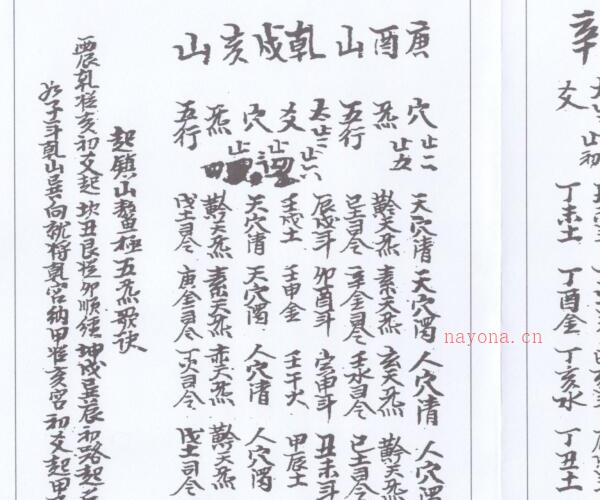 辛
爻 止初 丁未土 丁酉金 丁亥水 丁丑土
庚酉山乾戌亥山
穴止二 天穴清 天穴濁 人穴清 人穴濁
炁止五 黅天炁 素天炁 玄天炁 黅天炁
五行 己土司令 辛金司令 壬水司令 己土司令
止二 辰戌斗 卯酉斗 寅申斗 丑未斗
爻止六 壬戌土 壬申金 壬午火 甲辰土
穴止 天穴清 天穴濁 人穴清 人穴濁
炁止四 黅天炁 素天炁 赤天炁 黅天炁
五行 戊土司令 庚金司令 丁火司令 戊土司令
起鎮山鰲極五炁歌訣
震乾從亥初爻起坎丑艮從卯順經坤戌巽辰初路起
如子斗乾山巽向就將乾宮納甲從亥宮初爻起甲
nayona.cn